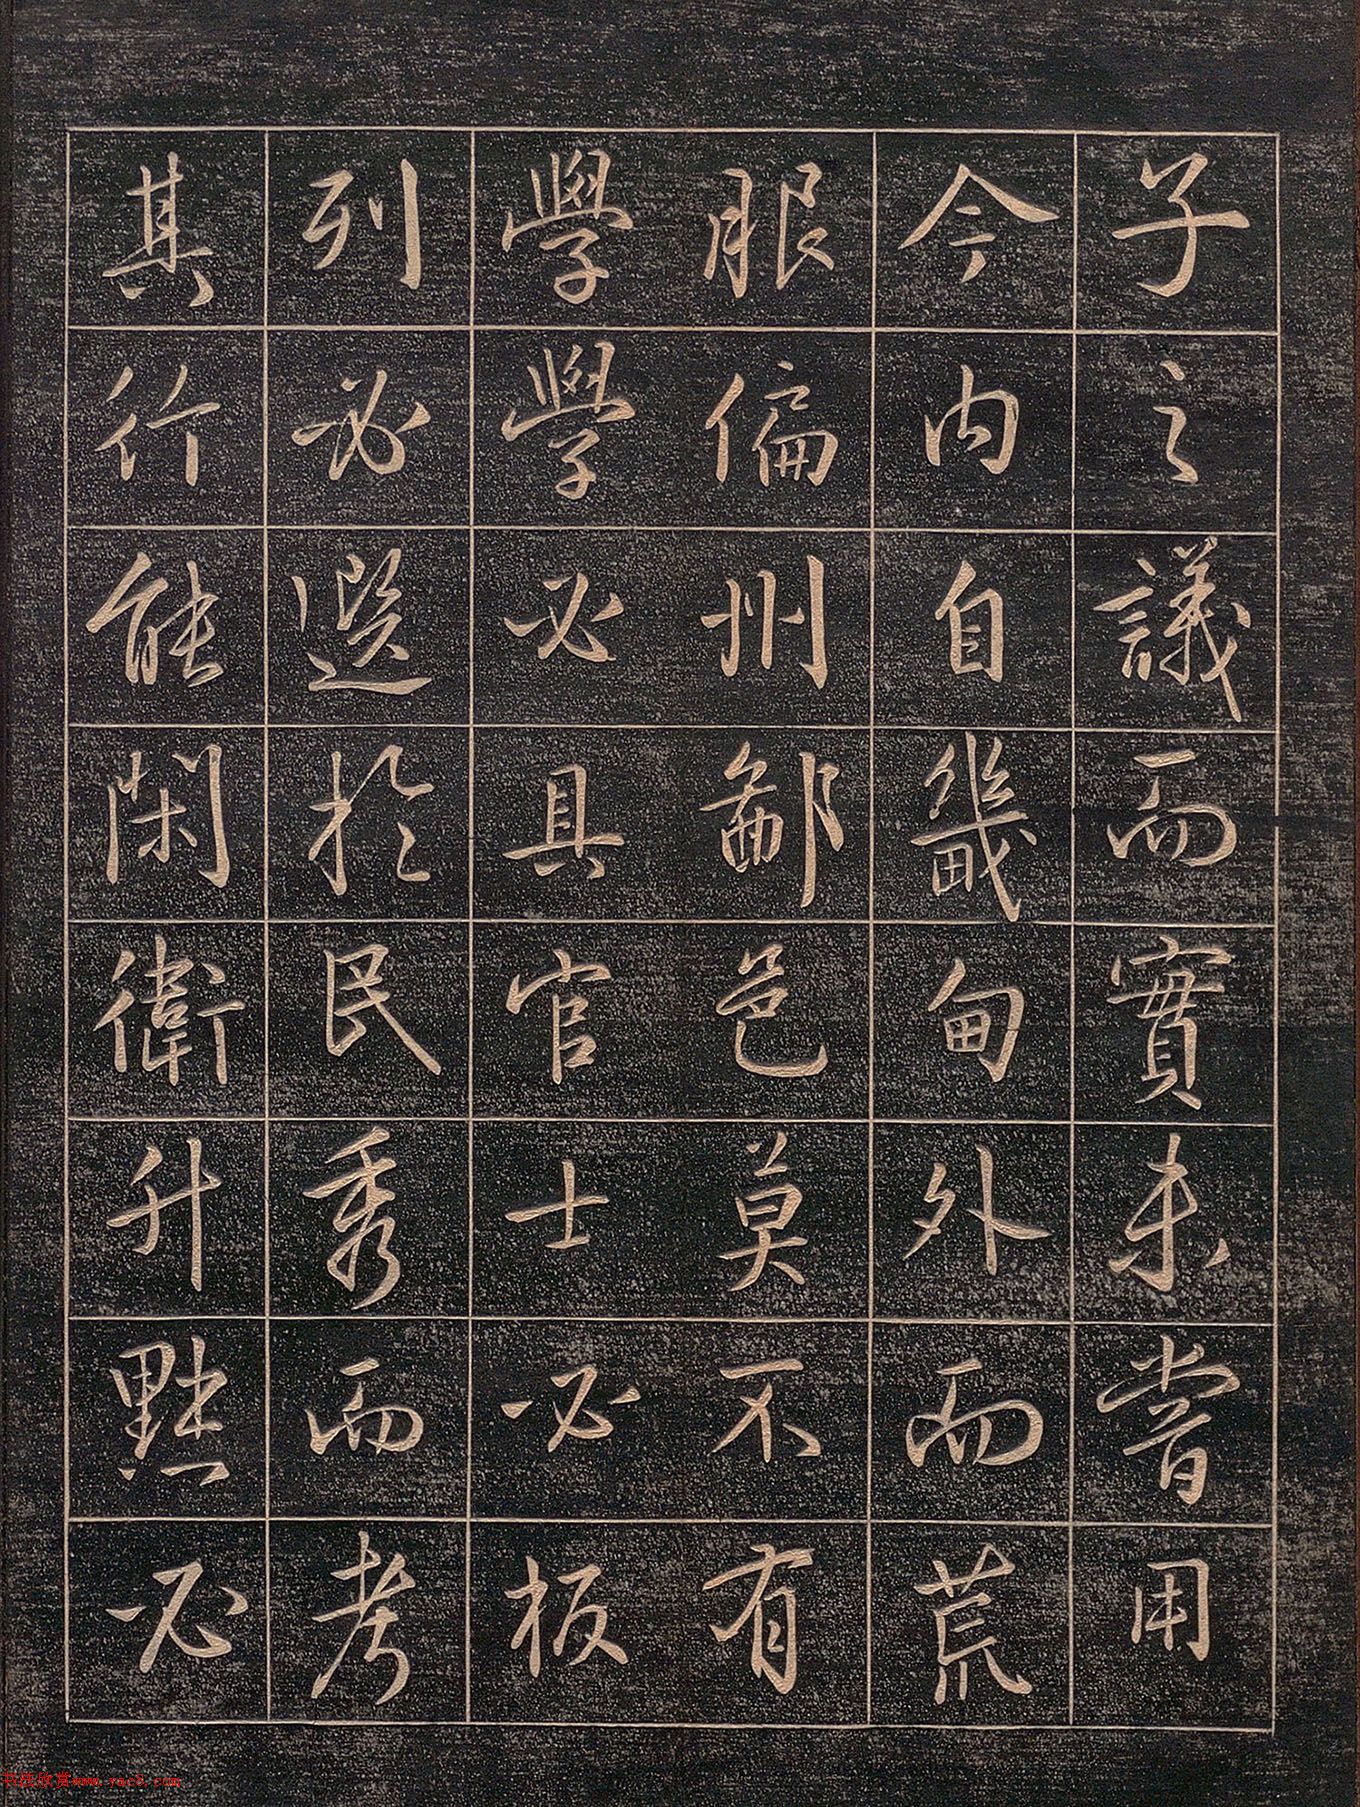 子之議而實未嘗用
今內自畿甸外而荒
服偏州鄙邑莫不有
學學必具官士必板
列必選於民秀而考
其行能閑衛升黜必
书法欣赏www.yac8.com